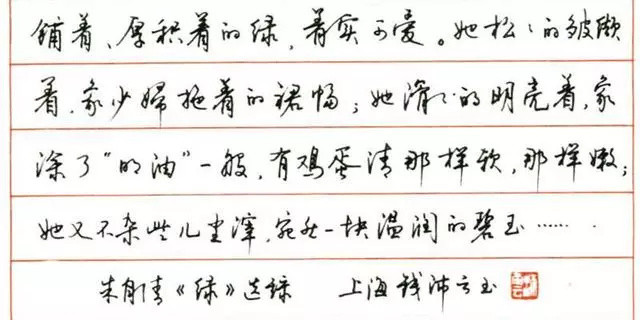 铺着、厚积着的绿，着实可爱。她松〻的皱缬
着，象少婦拖着的裙幅；她滑〻的明亮着，象
涂了“明油”一般，有鸡蛋清那样软，那样嫩；
她又不杂些儿尘滓，宛然一块温润的碧玉……
朱自清《绿》选录　上海钱沛云书